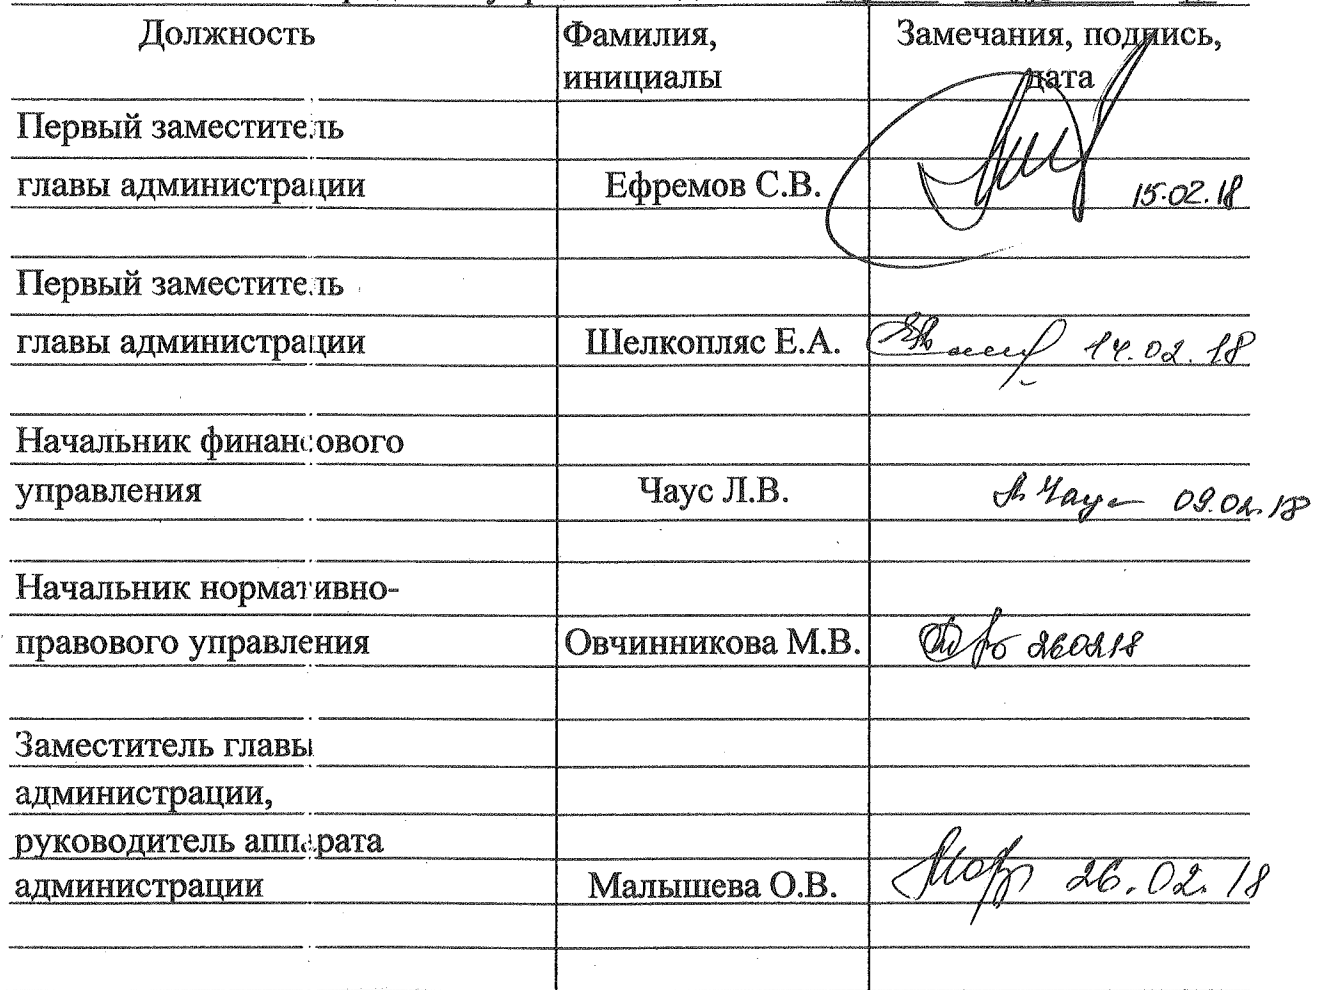 Должность Фамилия, Замечания, подпись,
инициалы дата
Первый заместитель
главы администрации Ефремов С.В. 15.02.18
Первый заместитель
главы администрации Шелкопляс Е.А. 14.02.18
Начальник финансового
управления Чаус Л.В. 09.02.18
Начальник нормативно-
правового управления Овчинникова М.В. 260218
Заместитель главы
администрации,
руководитель аппарата
администрации Малышева О.В. 26.02.18